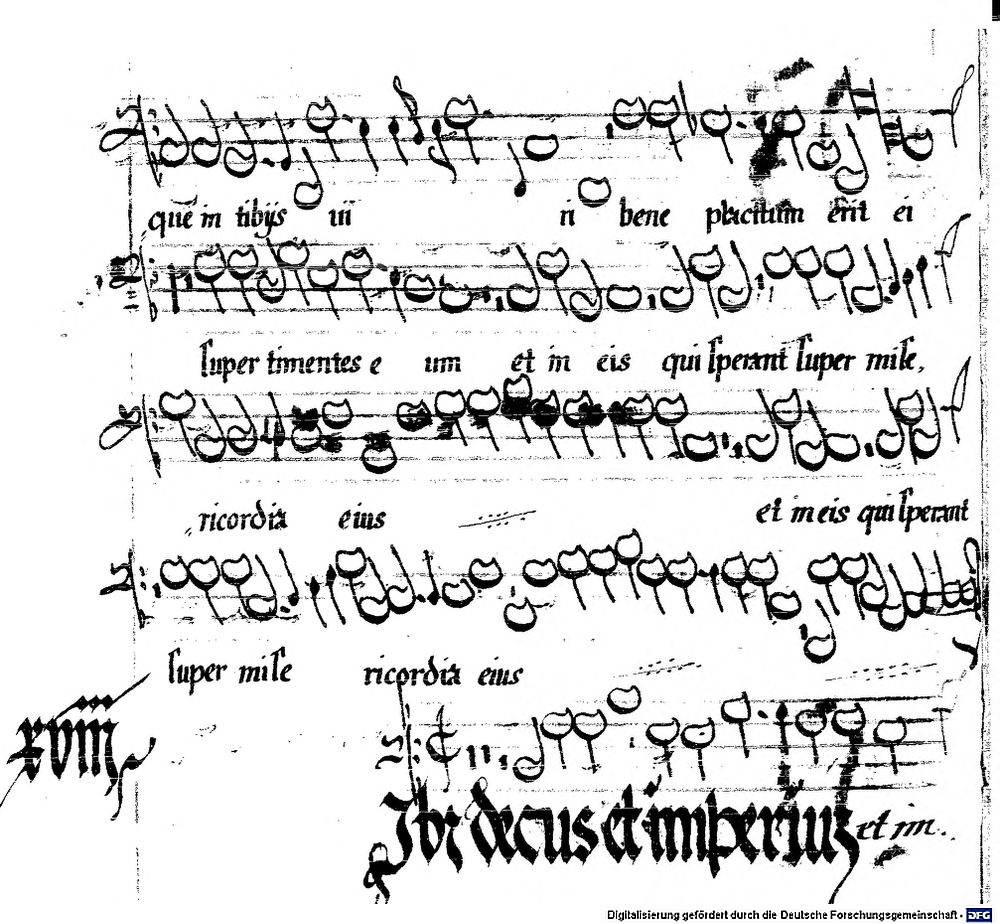 quē in tibijs vi ri bene placitum erit ei
super timentes e um et in eis qui sperant super mise,
ricordia eius et in eis qui sperant
super mise ricordia eius
xviij
decus et imperiuz et im..
Digitalisierung gefördert durch die Deutsche Forschungsgemeinschaft - DFG